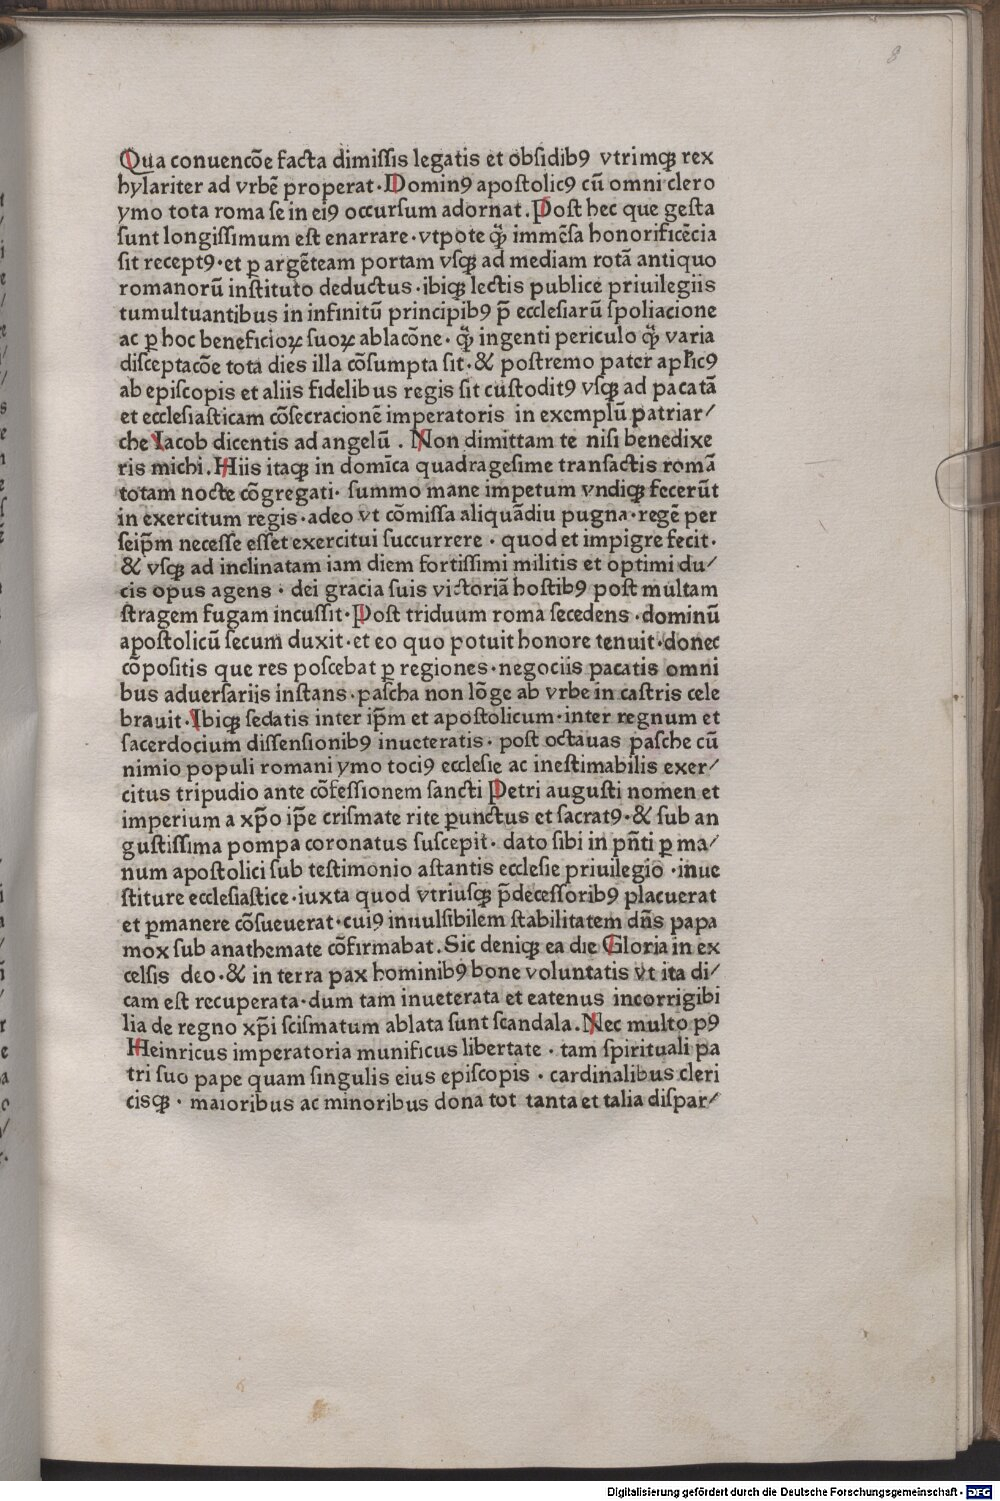 8
Qua conuencōe facta dimiſſis legatis et obſidibꝰ vtrimqꝫ rex
hylariter ad vrbē properat · Dominꝰ apoſtolicꝰ cū omni clero
ymo tota roma ſe in eiꝰ occurſum adornat . Poſt hec que geſta
ſunt longiſſimum eſt enarrare · vtpote qͣꝫ immēſa honorificēcia
ſit receptꝰ · et ꝑ argēteam portam vſqꝫ ad mediam rotā antiquo
romanorū inſtituto deductus · ibiqꝫ lectis publice priuilegiis
tumultuantibus in infinitū principibꝰ p̄ eccleſiarū ſpoliacione
ac ꝑ hoc beneficioꝝ ſuoꝝ ablacōne · qͣꝫ ingenti periculo qͣꝫ varia
diſceptacōe tota dies illa cōſumpta ſit · & poſtremo pater aplicꝰ
ab epiſcopis et aliis fidelibus regis ſit cuſtoditꝰ vſqꝫ ad pacatā
et eccleſiaſticam cōſecracionē imperatoris in exemplū patriar⸗
che Iacob dicentis ad angelū . Non dimittam te niſi benedixe
ris michi . Hiis itaqꝫ in domīca quadrageſime tranſactis romā
totam nocte cōgregati · ſummo mane impetum vndiqꝫ fecerūt
in exercitum regis · adeo vt cōmiſſa aliquādiu pugna · regē per
ſeip̄m neceſſe eſſet exercitui ſuccurrere · quod et impigre fecit ·
& vſqꝫ ad inclinatam iam diem fortiſſimi militis et optimi du⸗
cis opus agens · dei gracia ſuis victoriā hoſtibꝰ poſt multam
ſtragem fugam incuſſit · Poſt triduum roma ſecedens · dominū
apoſtolicū ſecum duxit · et eo quo potuit honore tenuit · donec
cōpoſitis que res poſcebat ꝑ regiones · negociis pacatis omni
bus aduerſariis inſtans · paſcha non lōge ab vrbe in caſtris cele
brauit · Ibiqꝫ ſedatis inter ip̄m et apoſtolicum · inter regnum et
ſacerdocium diſſenſionibꝰ inueteratis · poſt octauas paſche cū
nimio populi romani ymo tociꝰ eccleſie ac ineſtimabilis exer⸗
citus tripudio ante cōfeſſionem ſancti Petri auguſti nomen et
imperium a xp̄o ip̄e criſmate rite ꝑunctus et ſacratꝰ · & ſub an
guſtiſſima pompa coronatus ſuſcepit · dato ſibi in pn̄ti ꝑ ma⸗
num apoſtolici ſub teſtimonio aſtantis eccleſie priuilegio · inue
ſtiture eccleſiaſtice · iuxta quod vtriuſqꝫ p̄deceſſoribꝰ placuerat
et ꝑmanere cōſueuerat · cuiꝰ inuulſibilem ſtabilitatem dn̄s papa
mox ſub anathemate cōfirmabat . Sic deniqꝫ ea die Gloria in ex
celſis deo · & in terra pax hominibꝰ bone voluntatis vt ita di⸗
cam eſt recuperata · dum tam inueterata et eatenus incorrigibi
lia de regno xp̄i ſciſmatum ablata ſunt ſcandala . Nec multo pꝰ
Heinricus imperatoria munificus libertate · tam ſpirituali pa
tri ſuo pape quam ſingulis eius epiſcopis · cardinalibus cleri
ciſqꝫ · maioribus ac minoribus dona tot tanta et talia diſpar⸗
Digitalisierung gefördert durch die Deutsche Forschungsgemeinschaft - DFG